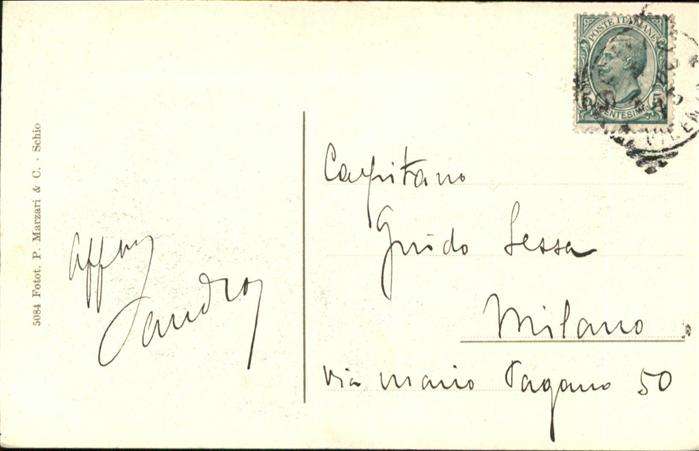 5084 Fotot. P. Marzari & C. - Schio
POSTE ITALIANE
5 CENTESIMI 5
Affmo
Sandro
Capitano
Guido Sessa
Milano
via Mario Pagano 50